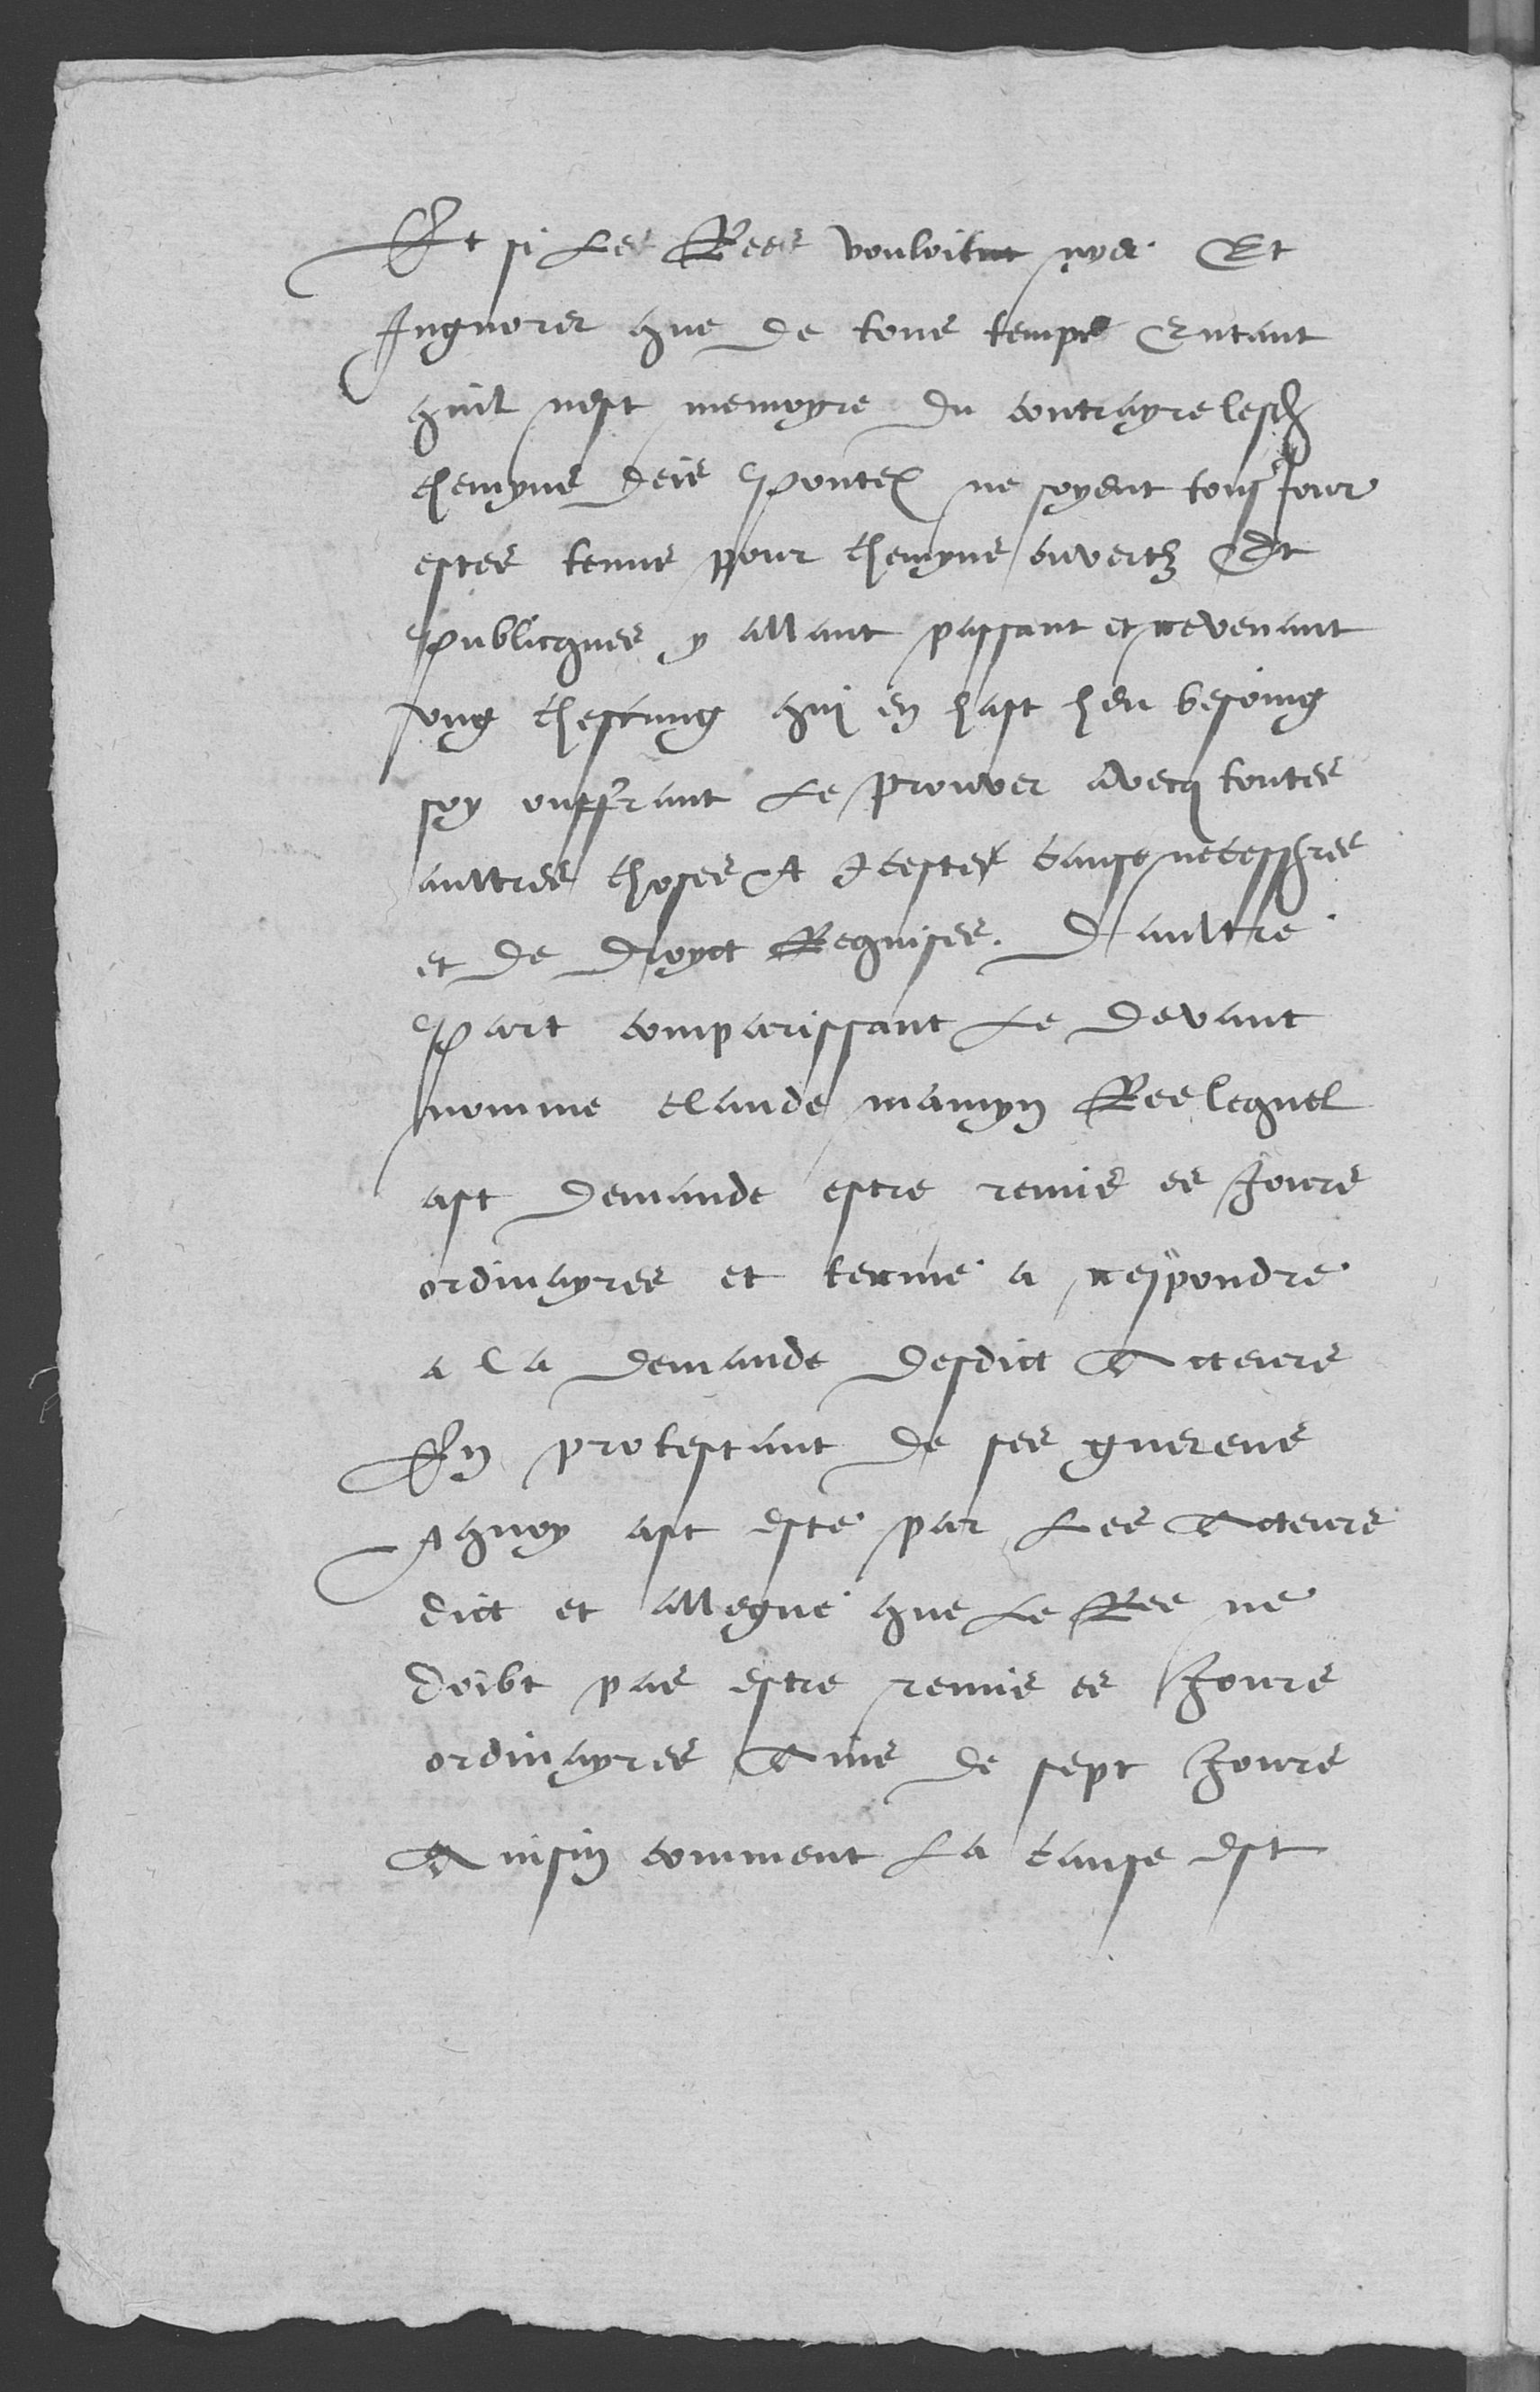 Et si Les Rees vouloient nyer Et
Ingnorer que de tous temps Entant
quil nest memoyre du contrayre lesd
chemyns deis Pontex ne soyent tousjour
estes tenus pour chemyns ouvertz Et
Publicques y allant passant et revenant
ung chescung qui en hast heu besoing
soy ouffrant Le prouver avecq toutes
aultres choses A Iceste cause necessres
et de droyct Requises. D aultre
Part comparissant Le devant
nomme claude mamyn Ree lequel
ast demande estre remis es Jours
ordinayres et terme a respondre
a la demande desdict Acteurs
En protestant de ses guerens
A quoy ast este par Les Acteurs
dict et allegue que Le Ree ne
doibt pas estre remis es Jours
ordinayres Ains de sept Jours
Ainsin comment La cause est